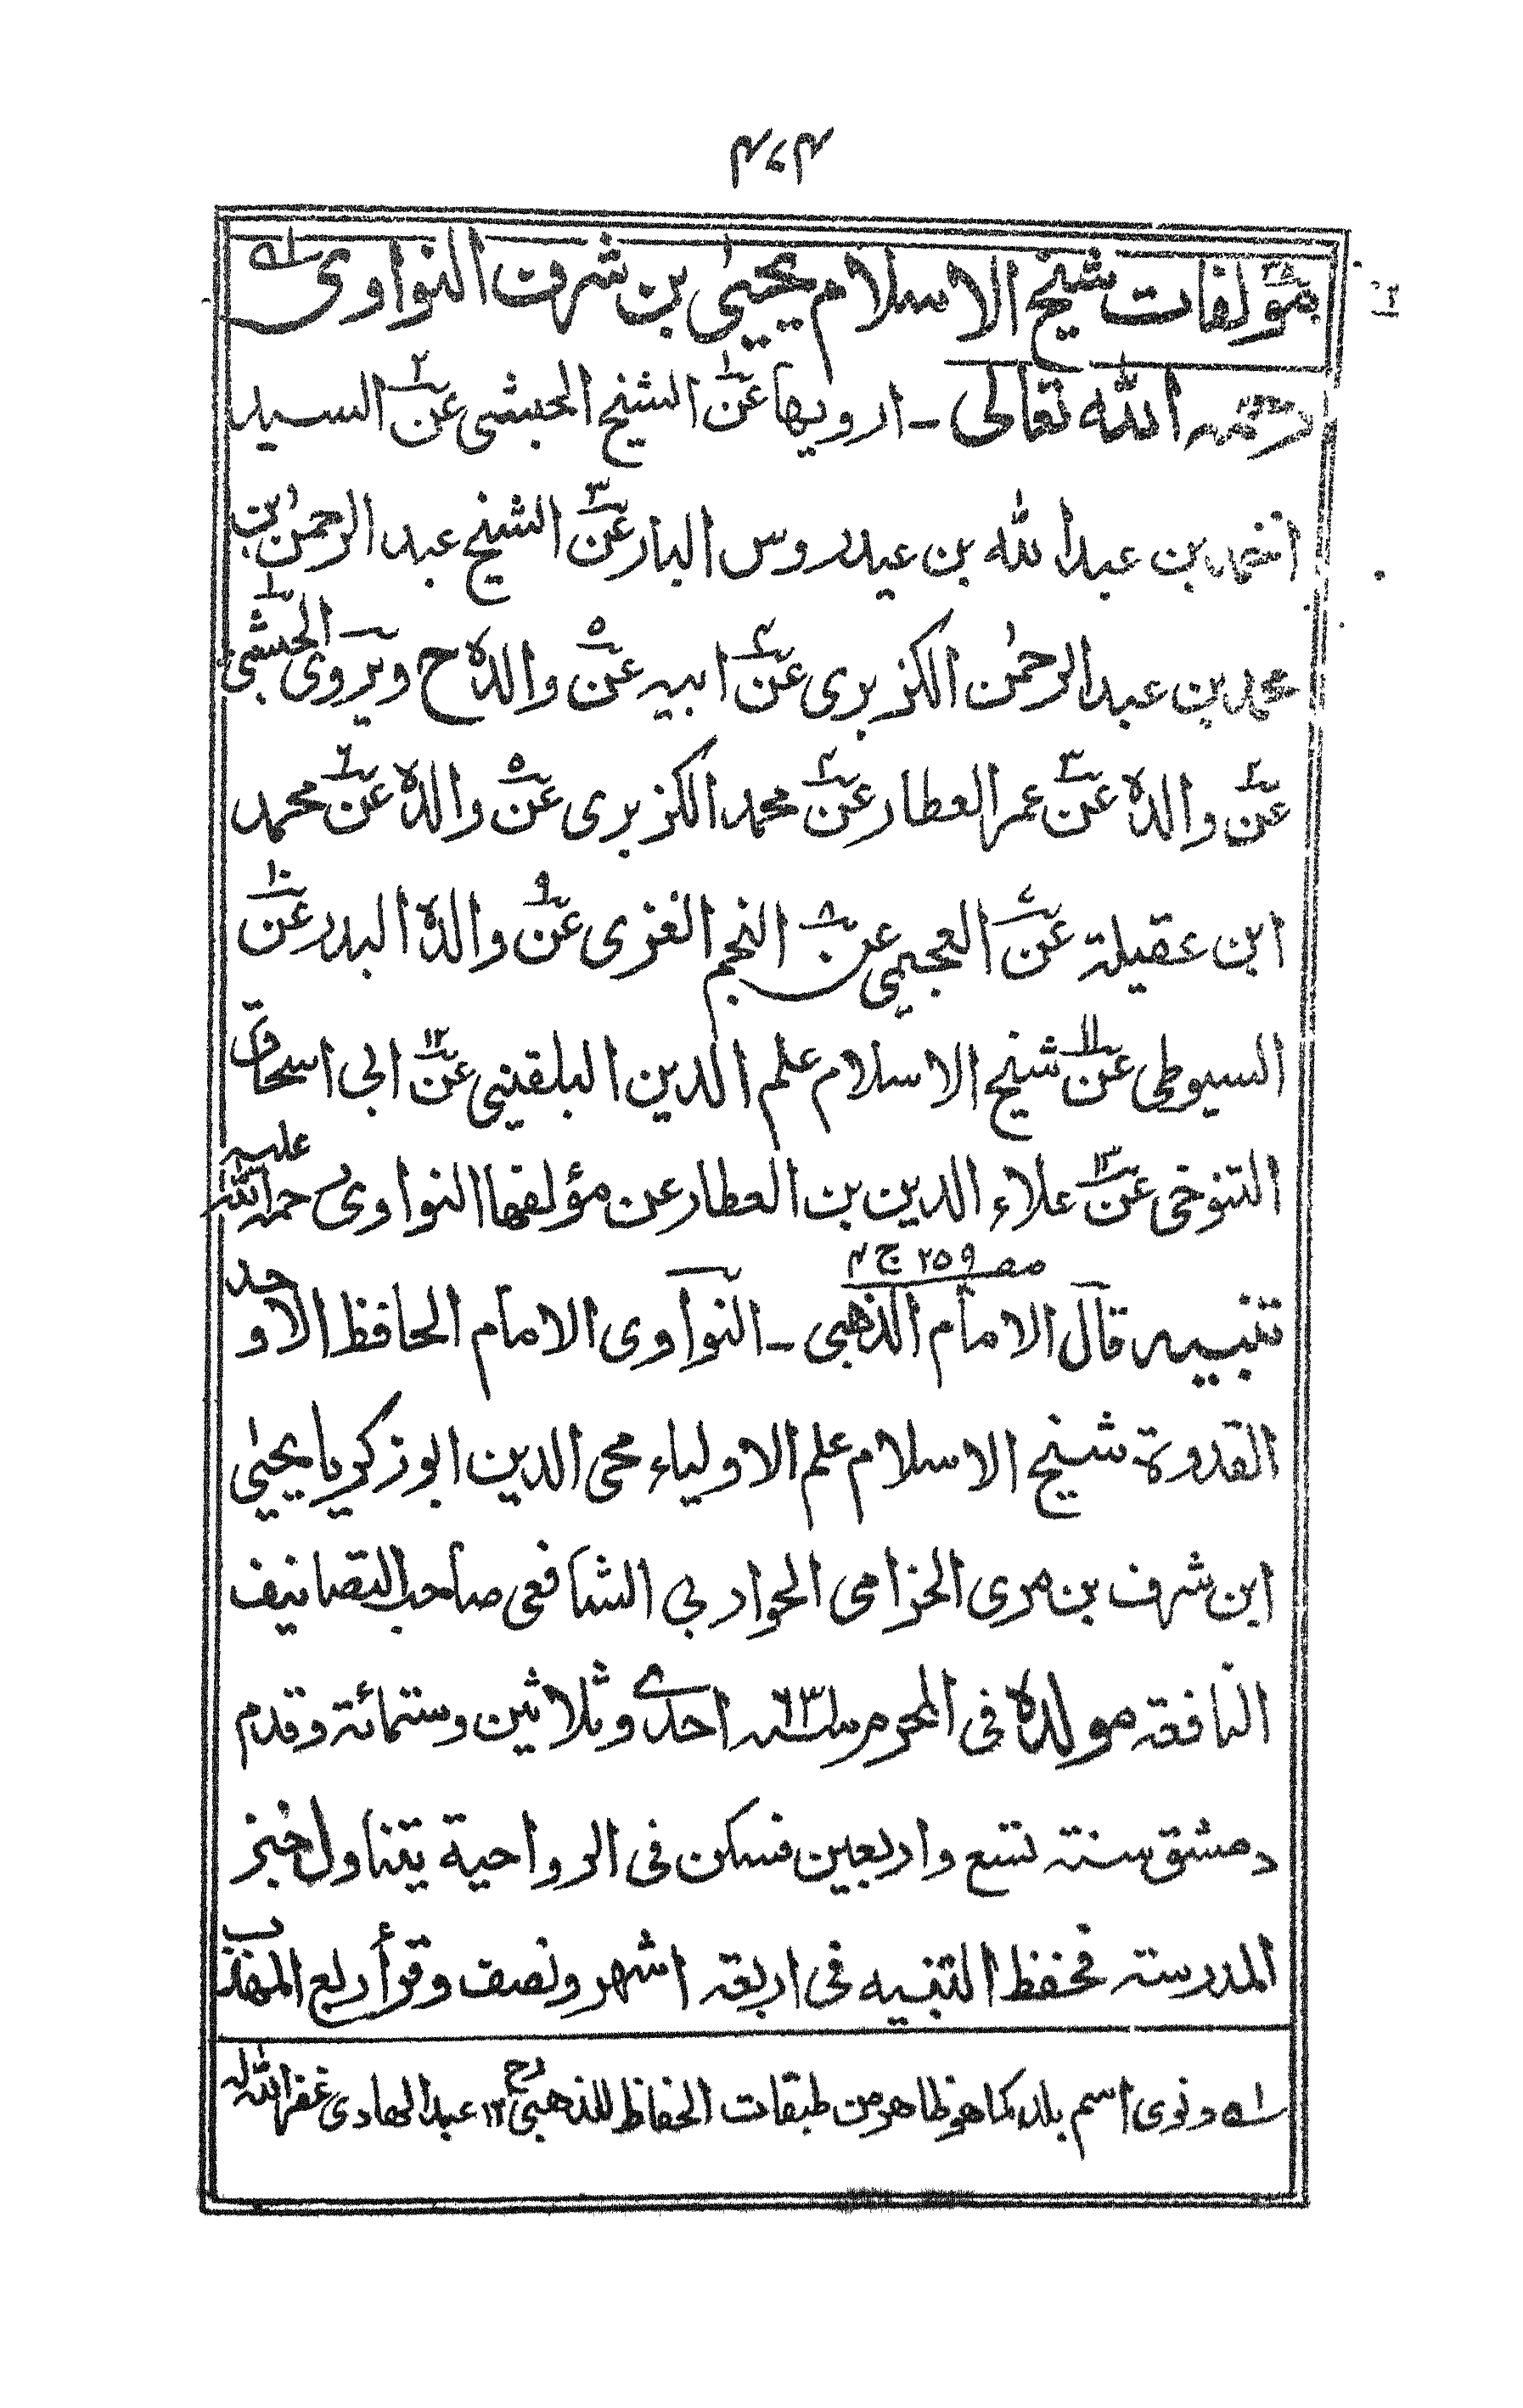 ۴۷۴
مؤلفات شيخ الاسلام يحيىٰ بن شرف النواوى له
رحمه الله تعالى ـ ارويها عن۱ الشيخ الحبشى عن۲ السيد
احمد بن عبد الله بن عيدروس البار عن۳ الشيخ عبد الرحمٰن بن
محمد بن عبد الرحمٰن الكزبرى عن۴ ابيه عن۵ والده ح ويروى الحبشى۱
عن۲ والده عن۳ عمر العطار عن۴ محمد الكزبرى عن۵ والده عن۶ محمد
ابن عقيلة عن۷ العجيمى عن۸ النجم الغزى عن۹ والده البدر عن۱۰
السيوطى عن۱۱ شيخ الاسلام علم الدين البلقينى عن۱۲ ابى اسحاق
التنوخى عن۱۳ علاء الدين بن العطار عن مؤلفها النواوى رحمة الله عليه
صـ۲۵۹ ج ۴
تنبيه قال الامام الذهبى ـ النواوى الامام الحافظ الاوحد
القدوة شيخ الاسلام علم الاولياء محى الدين ابو زكريا يحيىٰ
ابن شرف بن مرى الخزامى الحواربى الشافعى صاحب التصانيف
النافعة مولده فى المحرم سنة ۶۳۱ احدى وثلاثين وستمائة وقدم
دمشق سنة تسع واربعين فسكن فى الرواحية يتناول خبز
المدرسة فحفظ التنبيه فى اربعة اشهر ونصف وقرأ ربع المهذب
له ونوى اسم بلده كما هو ظاهر من طبقات الحفاظ للذهبى رح ۱۲ عبد الهادى غفر الله له